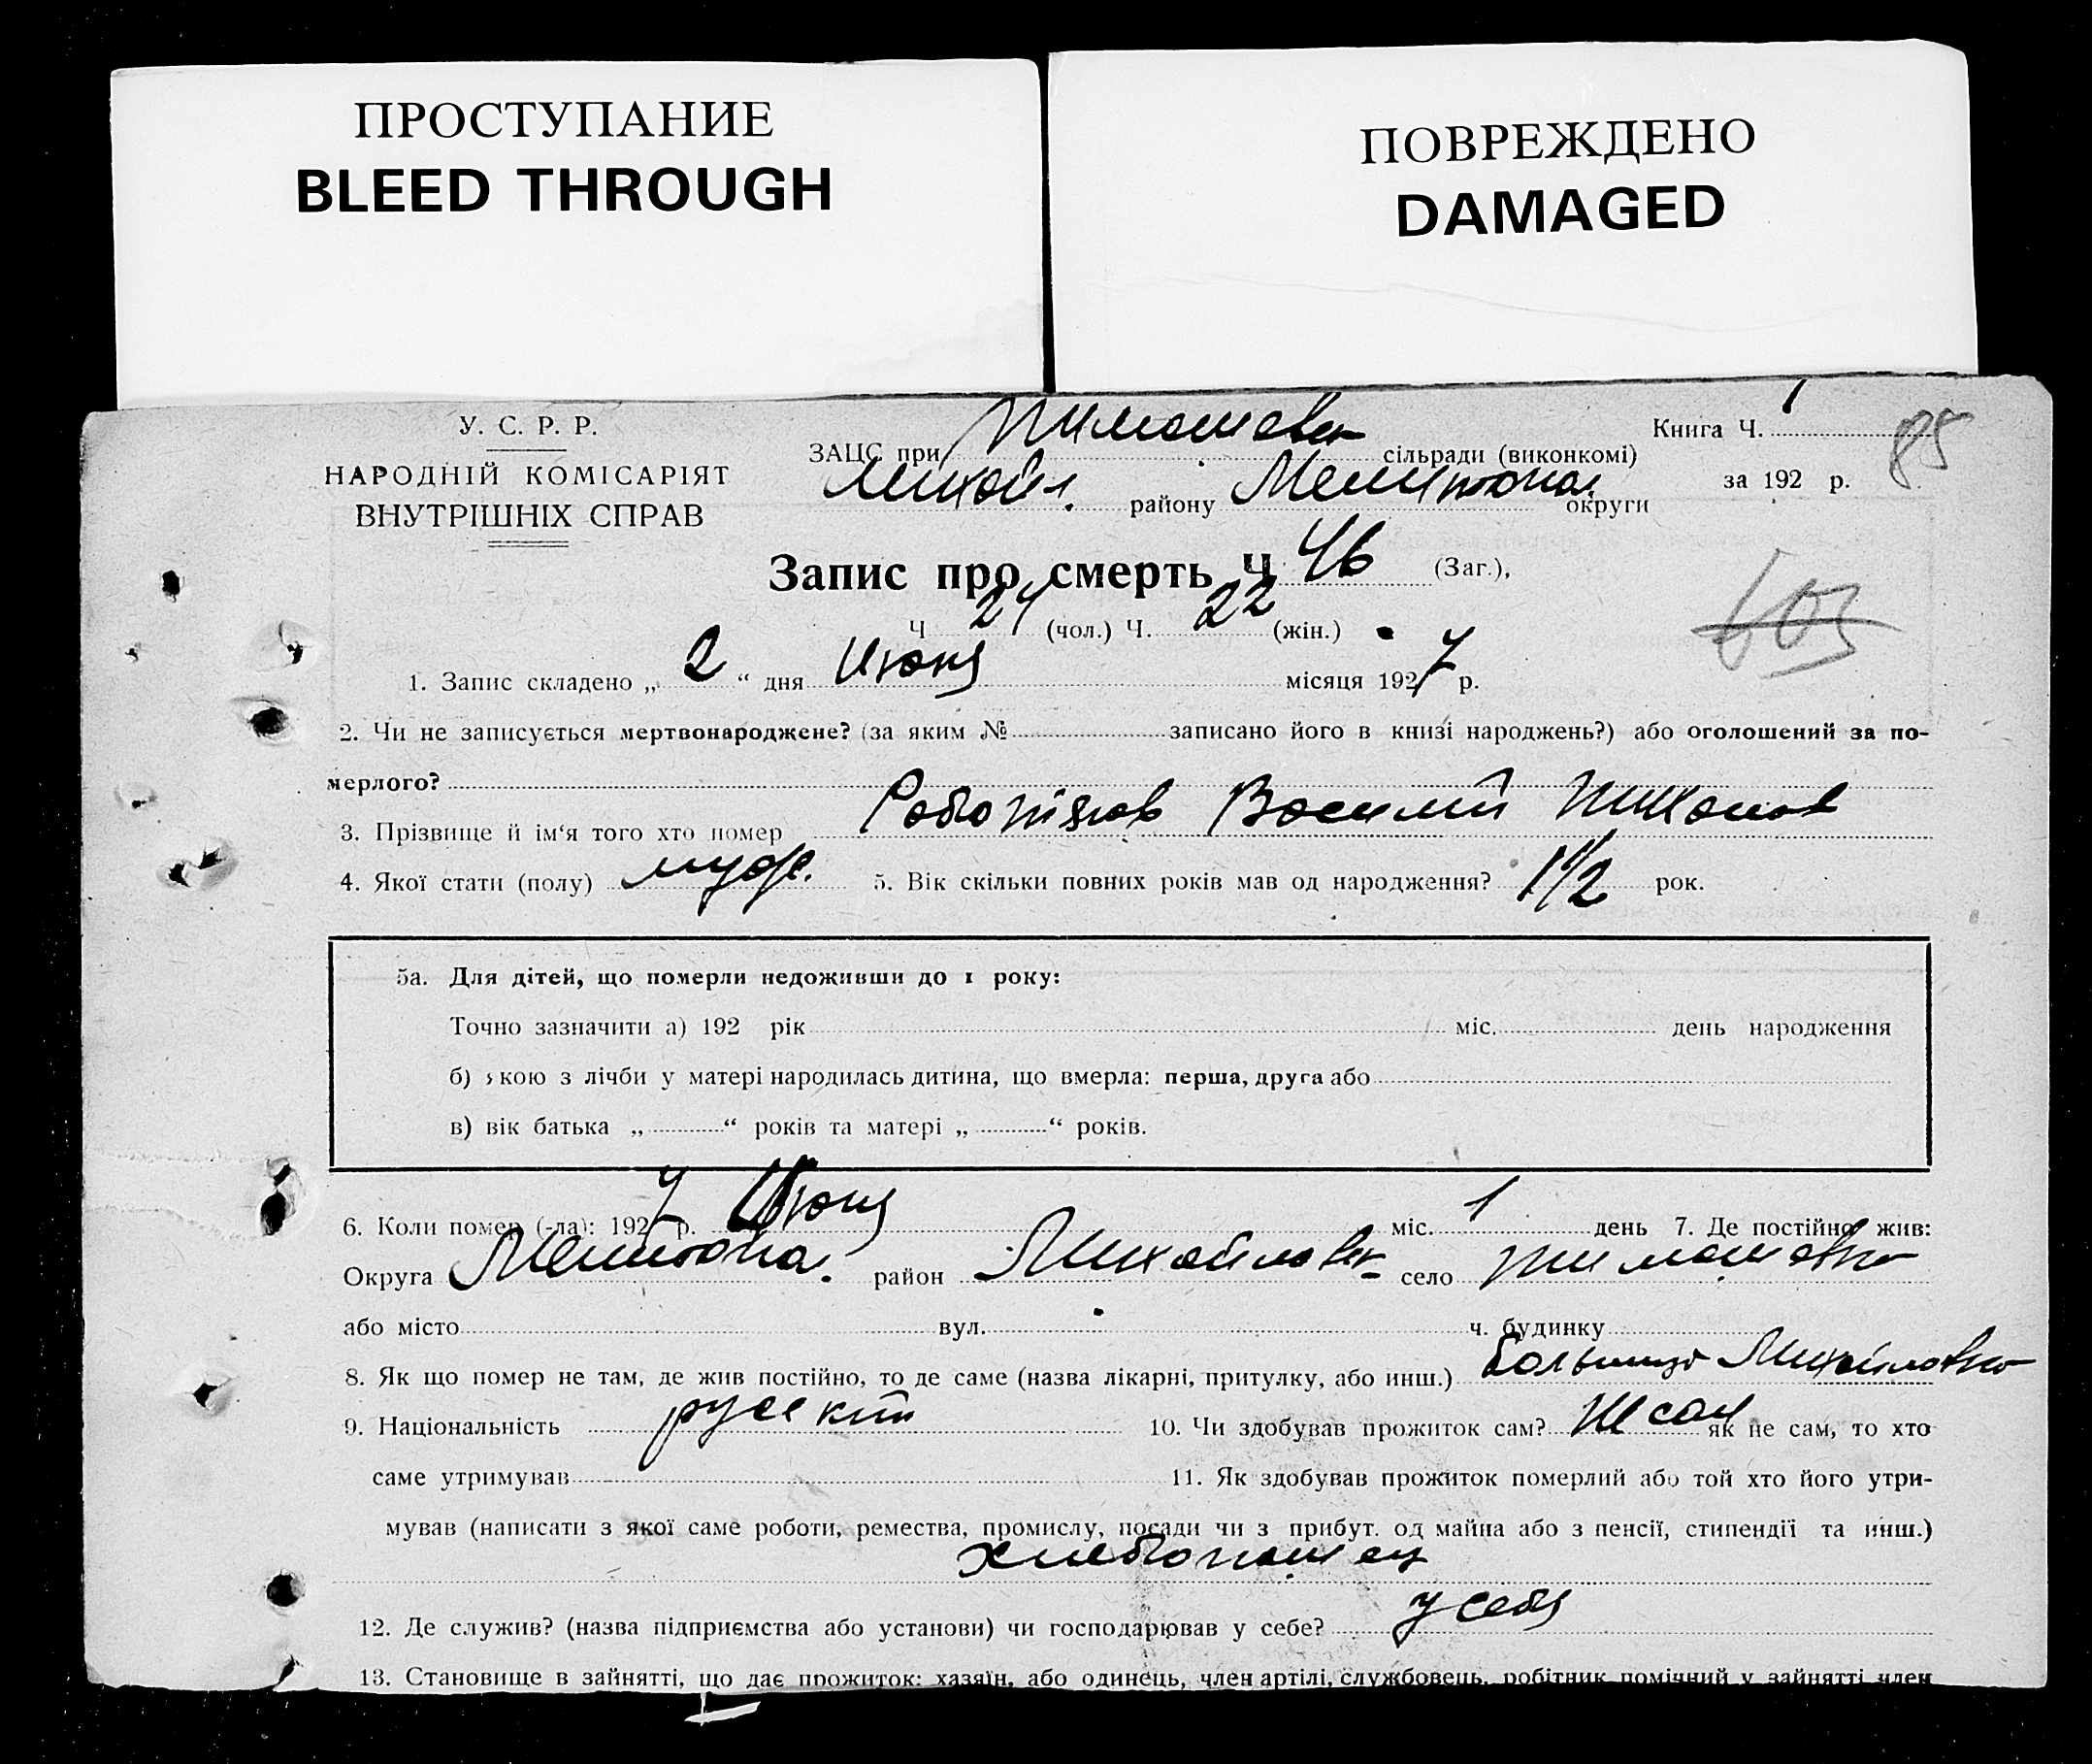 ПРОСТУПАНИЕ
BLEED THROUGH
ПОВРЕЖДЕНО
DAMAGED
У. С. Р. Р.
НАРОДНІЙ КОМІСАРІЯТ
ВНУТРІШНІХ СПРАВ
ЗАЦС при Тимошевск сільради (виконкомі)
Михайл. району Мелитопол. округи
Книга Ч. 1
за 192 р.
85
Запис про смерть Ч 46 (Заг.),
Ч 24 (чол.) Ч. 22 (жін.)
603
1. Запис складено „ 2 “ дня Июня місяця 1927 р.
2. Чи не записується мертвонароджене? (за яким № записано його в книзі народжень?) або оголошений за по-
мерлого?
3. Прізвище й ім‘я того хто помер Василий Тихонов
4. Якої стати (полу) муж. 5. Вік скільки повних років мав од народження? 1 1/2 рок.
5а. Для дітей, що померли недоживши до 1 року:
Точно зазначити а) 192 рік міс. день народження
б) якою з лічби у матері народилась дитина, що вмерла: перша, друга або
в) вік батька „ “ років та матері „ “ років.
6. Коли помер (-ла): 1927 р. Июня міс. 1 день 7. Де постійно жив:
Округа Мелитопол. район Михайловск село Тимошевка
або місто вул. ч. будинку
8. Як що помер не там, де жив постійно, то де саме (назва лікарні, притулку, або инш.) Больница Михайловка
9. Національність русский 10. Чи здобував прожиток сам? як не сам, то хто
саме утримував 11. Як здобував прожиток померлий або той хто його утри-
мував (написати з якої саме роботи, ремества, промислу, посади чи з прибут. од майна або з пенсії, стипендії та инш.)
хлебопашец
12. Де служив? (назва підприємства або установи) чи господарював у себе? у себя
13. Становище в зайнятті, що дає прожиток: хазяїн, або одинець, член артілі, службовець, робітник помічний у зайнятті член